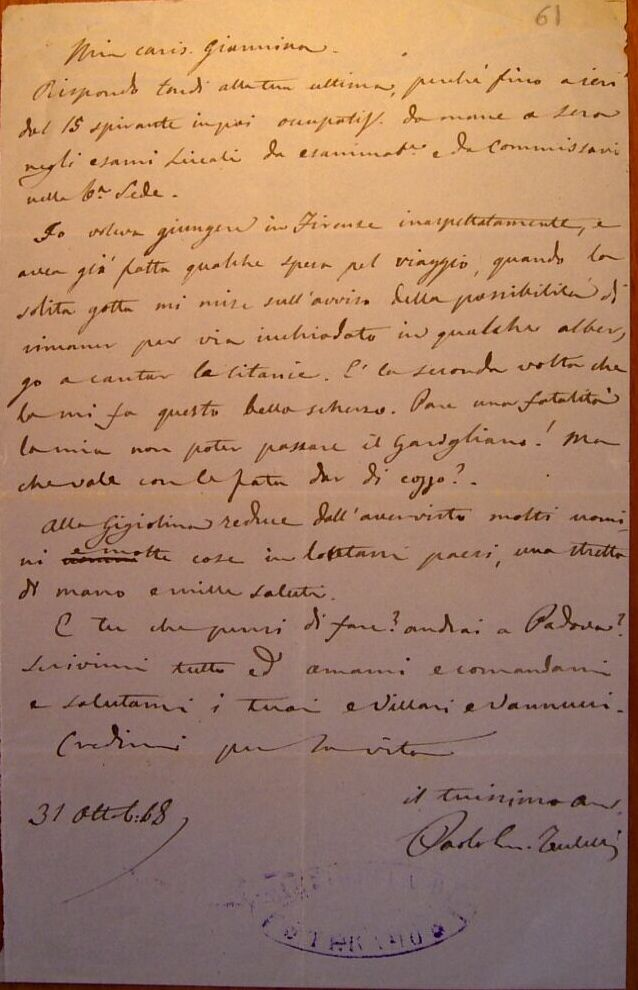 61
Mia caris. Giannina.
Rispondo tardi alla tua ultima, perché fino a ieri
dal 15 spirante in poi occupatiss. da mane a sera
negli esami liceali da esaminat.e e da Commissario
nella 6.a Sede.
Io voleva giungere in Firenze inaspettatamente, e
avea già fatta qualche spesa pel viaggio, quando la
solita gotta mi mise sull'avviso della possibilità di
rimaner per via inchiodato in qualche alber,
go a cantar le litanie. È la seconda volta che
la mi fa questo bello scherzo. Pare una fatalità
la mia non poter passare il Garigliano! Ma
che vale con le fata dar di cozzo?.
Alla Gigiotina reduce dall'aver visto molti uomi,
ni e molte cose in lontani paesi, una stretta
di mano e mille saluti.
E tu che pensi di fare? andrai a Padova?
scrivimi tutto ed amami e comandami
e salutami i tuoi e Villari e Vannucci.
Credimi per la vita
il tuissimo am.
31 Ottob: 68
Paolo
TERAMO